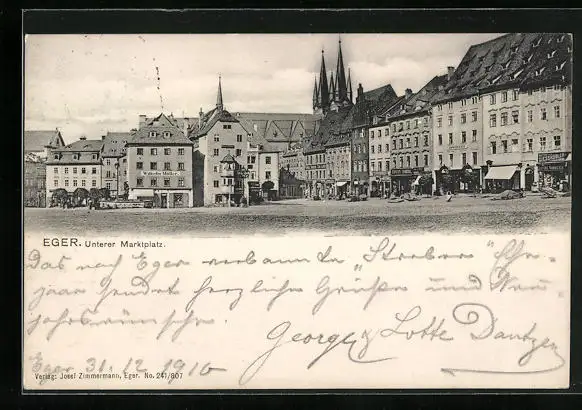 Wilhelm Müller
EGER. Unterer Marktplatz.
Das nach Eger verbannte "Streber" Ehe-
paar sendet herzliche Grüße und Neu-
jahrswünsche
George & Lotte Dantzer
Eger 31. 12. 1910
Verlag: Josef Zimmermann, Eger. No. 241/807